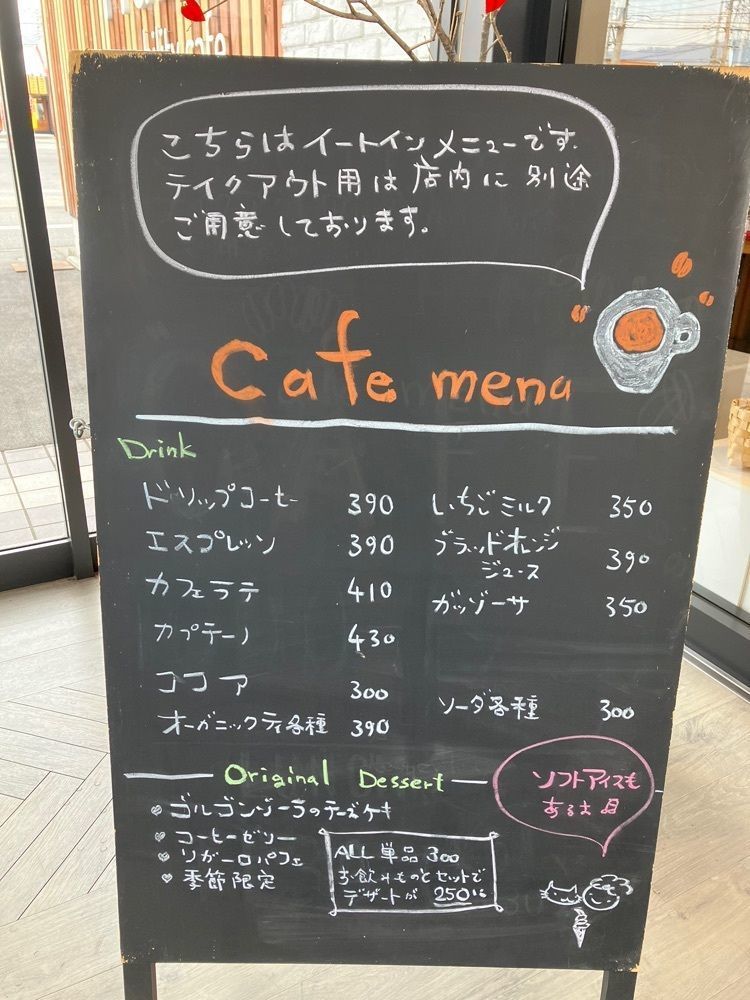 こちらはイートインメニューです.
テイクアウト用は店内に別途
ご用意しております。
Cafe menu
Drink
ドリップコーヒー 390
エスプレッソ 390
カフェラテ 410
カプチーノ 430
ココア 300
オーガニックティ各種 390
いちごミルク 350
ブラッドオレンジ
ジュース 390
ガッゾーサ 350
ソーダ各種 300
Original Dessert
ゴルゴンゾーラのチーズケーキ
コーヒーゼリー
リガーロパフェ
季節限定
ALL 単品 300
お飲みものとセットで
デザートが 250に
ソフトアイスも
あるよ